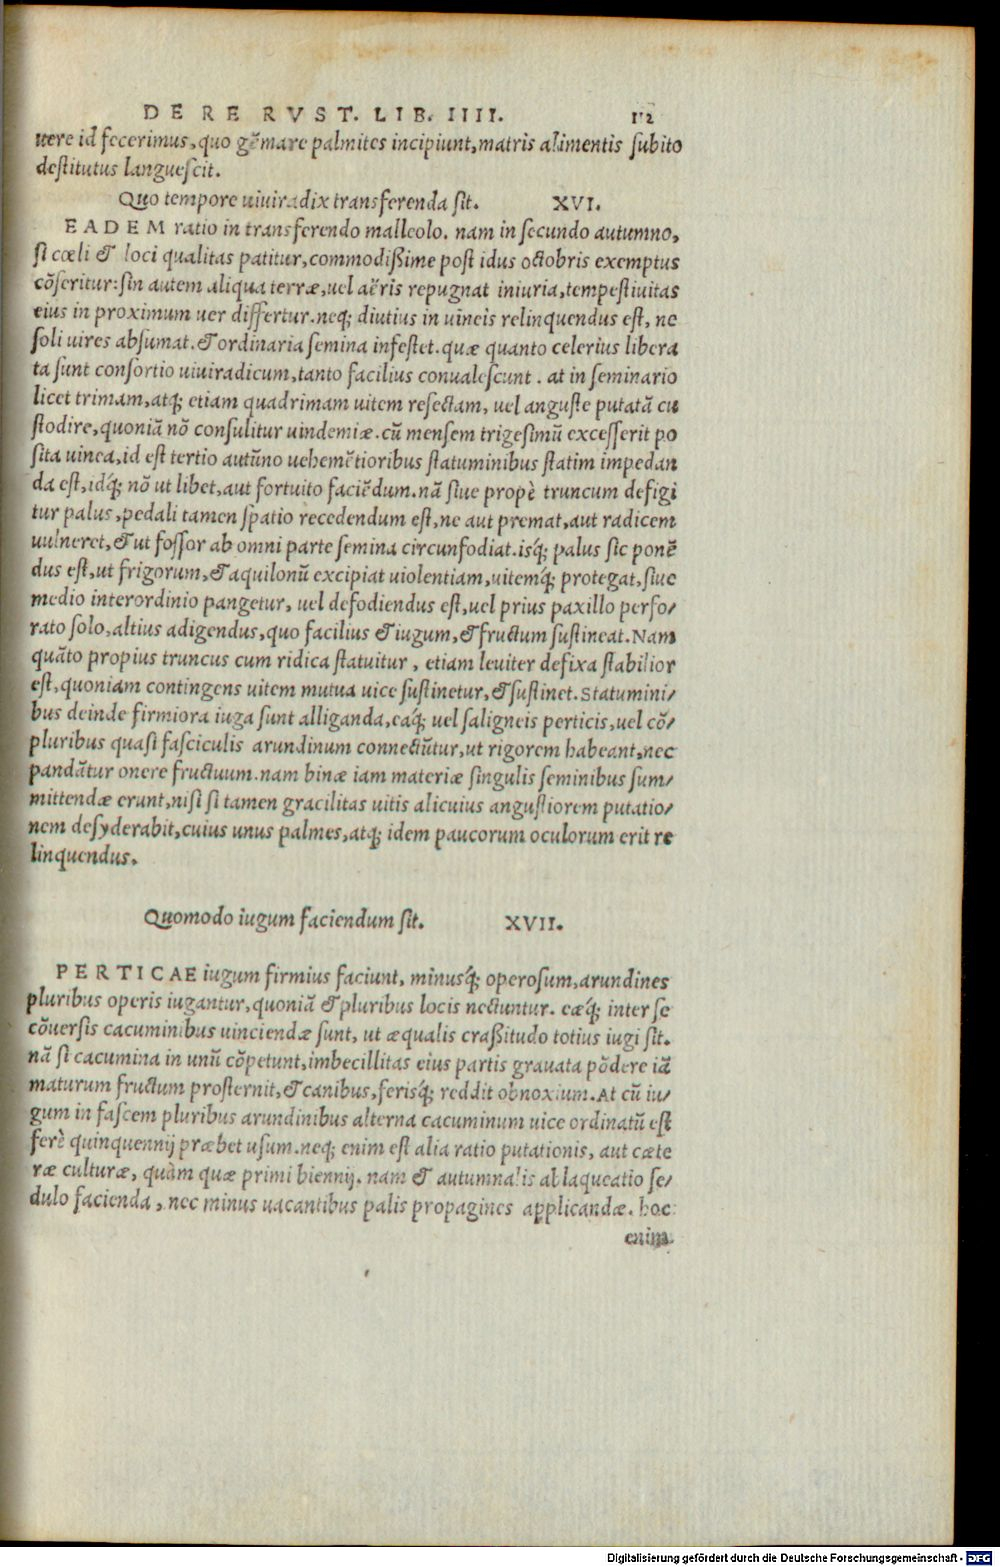 DE RE RVST. LIB. IIII. 112
uere id fecerimus, quo gẽmare palmites incipiunt, matris alimentis subito
destitutus languescit.
Quo tempore uiuiradix transferenda sit. XVI.
EADEM ratio in transferendo malleolo. nam in secundo autumno,
si cœli & loci qualitas patitur, commodißime post idus octobris exemptus
cõseritur: sin autem aliqua terræ, uel aëris repugnat iniuria, tempestiuitas
eius in proximum uer differtur. neq; diutius in uineis relinquendus est, ne
soli uires absumat. & ordinaria semina infestet. quæ quanto celerius libera
ta sunt consortio uiuiradicum, tanto facilius conualescunt. at in seminario
licet trimam, atq; etiam quadrimam uitem resectam, uel anguste putatã cu
stodire, quoniã nõ consulitur uindemiæ. cũ mensem trigesimũ excesserit po
sita uinea, id est tertio autũno uehemẽtioribus statuminibus statim impedan
da est, idq́; nõ ut libet, aut fortuito faciẽdum. nã siue propè truncum defigi
tur palus, pedali tamen spatio recedendum est, ne aut premat, aut radicem
uulneret, & ut fossor ab omni parte semina circunfodiat. isq́; palus sic ponẽ
dus est, ut frigorum, & aquilonũ excipiat uiolentiam, uitemq́; protegat, siue
medio interordinio pangetur, uel defodiendus est, uel prius paxillo perfo/
rato solo, altius adigendus, quo facilius & iugum, & fructum sustineat. Nam
quãto propius truncus cum ridica statuitur, etiam leuiter defixa stabilior
est, quoniam contingens uitem mutua uice sustinetur, & sustinet. Statumini/
bus deinde firmiora iuga sunt alliganda, eaq́; uel saligneis perticis, uel cõ/
pluribus quasi fasciculis arundinum connectũtur, ut rigorem habeant, nec
pandãtur onere fructuum. nam binæ iam materiæ singulis seminibus sum/
mittendæ erunt, nisi si tamen gracilitas uitis alicuius angustiorem putatio/
nem desyderabit, cuius unus palmes, atq; idem paucorum oculorum erit re
linquendus.
Quomodo iugum faciendum sit. XVII.
PERTICAE iugum firmius faciunt, minusq́; operosum, arundines
pluribus operis iugantur, quoniã & pluribus locis nectuntur. eæq́; inter se
cõuersis cacuminibus uinciendæ sunt, ut æqualis craßitudo totius iugi sit.
nã si cacumina in unũ cõpetunt, imbecillitas eius partis grauata põdere iã
maturum fructum prosternit, & canibus, ferisq́; reddit obnoxium. At cũ iu/
gum in fascem pluribus arundinibus alterna cacuminum uice ordinatũ est
ferè quinquennij præbet usum. neq; enim est alia ratio putationis, aut cæte
ræ culturæ, quàm quæ primi biennij. nam & autumnalis ablaqueatio se/
dulo facienda, nec minus uacantibus palis propagines applicandæ. hoc
enim
Digitalisierung gefördert durch die Deutsche Forschungsgemeinschaft - DFG